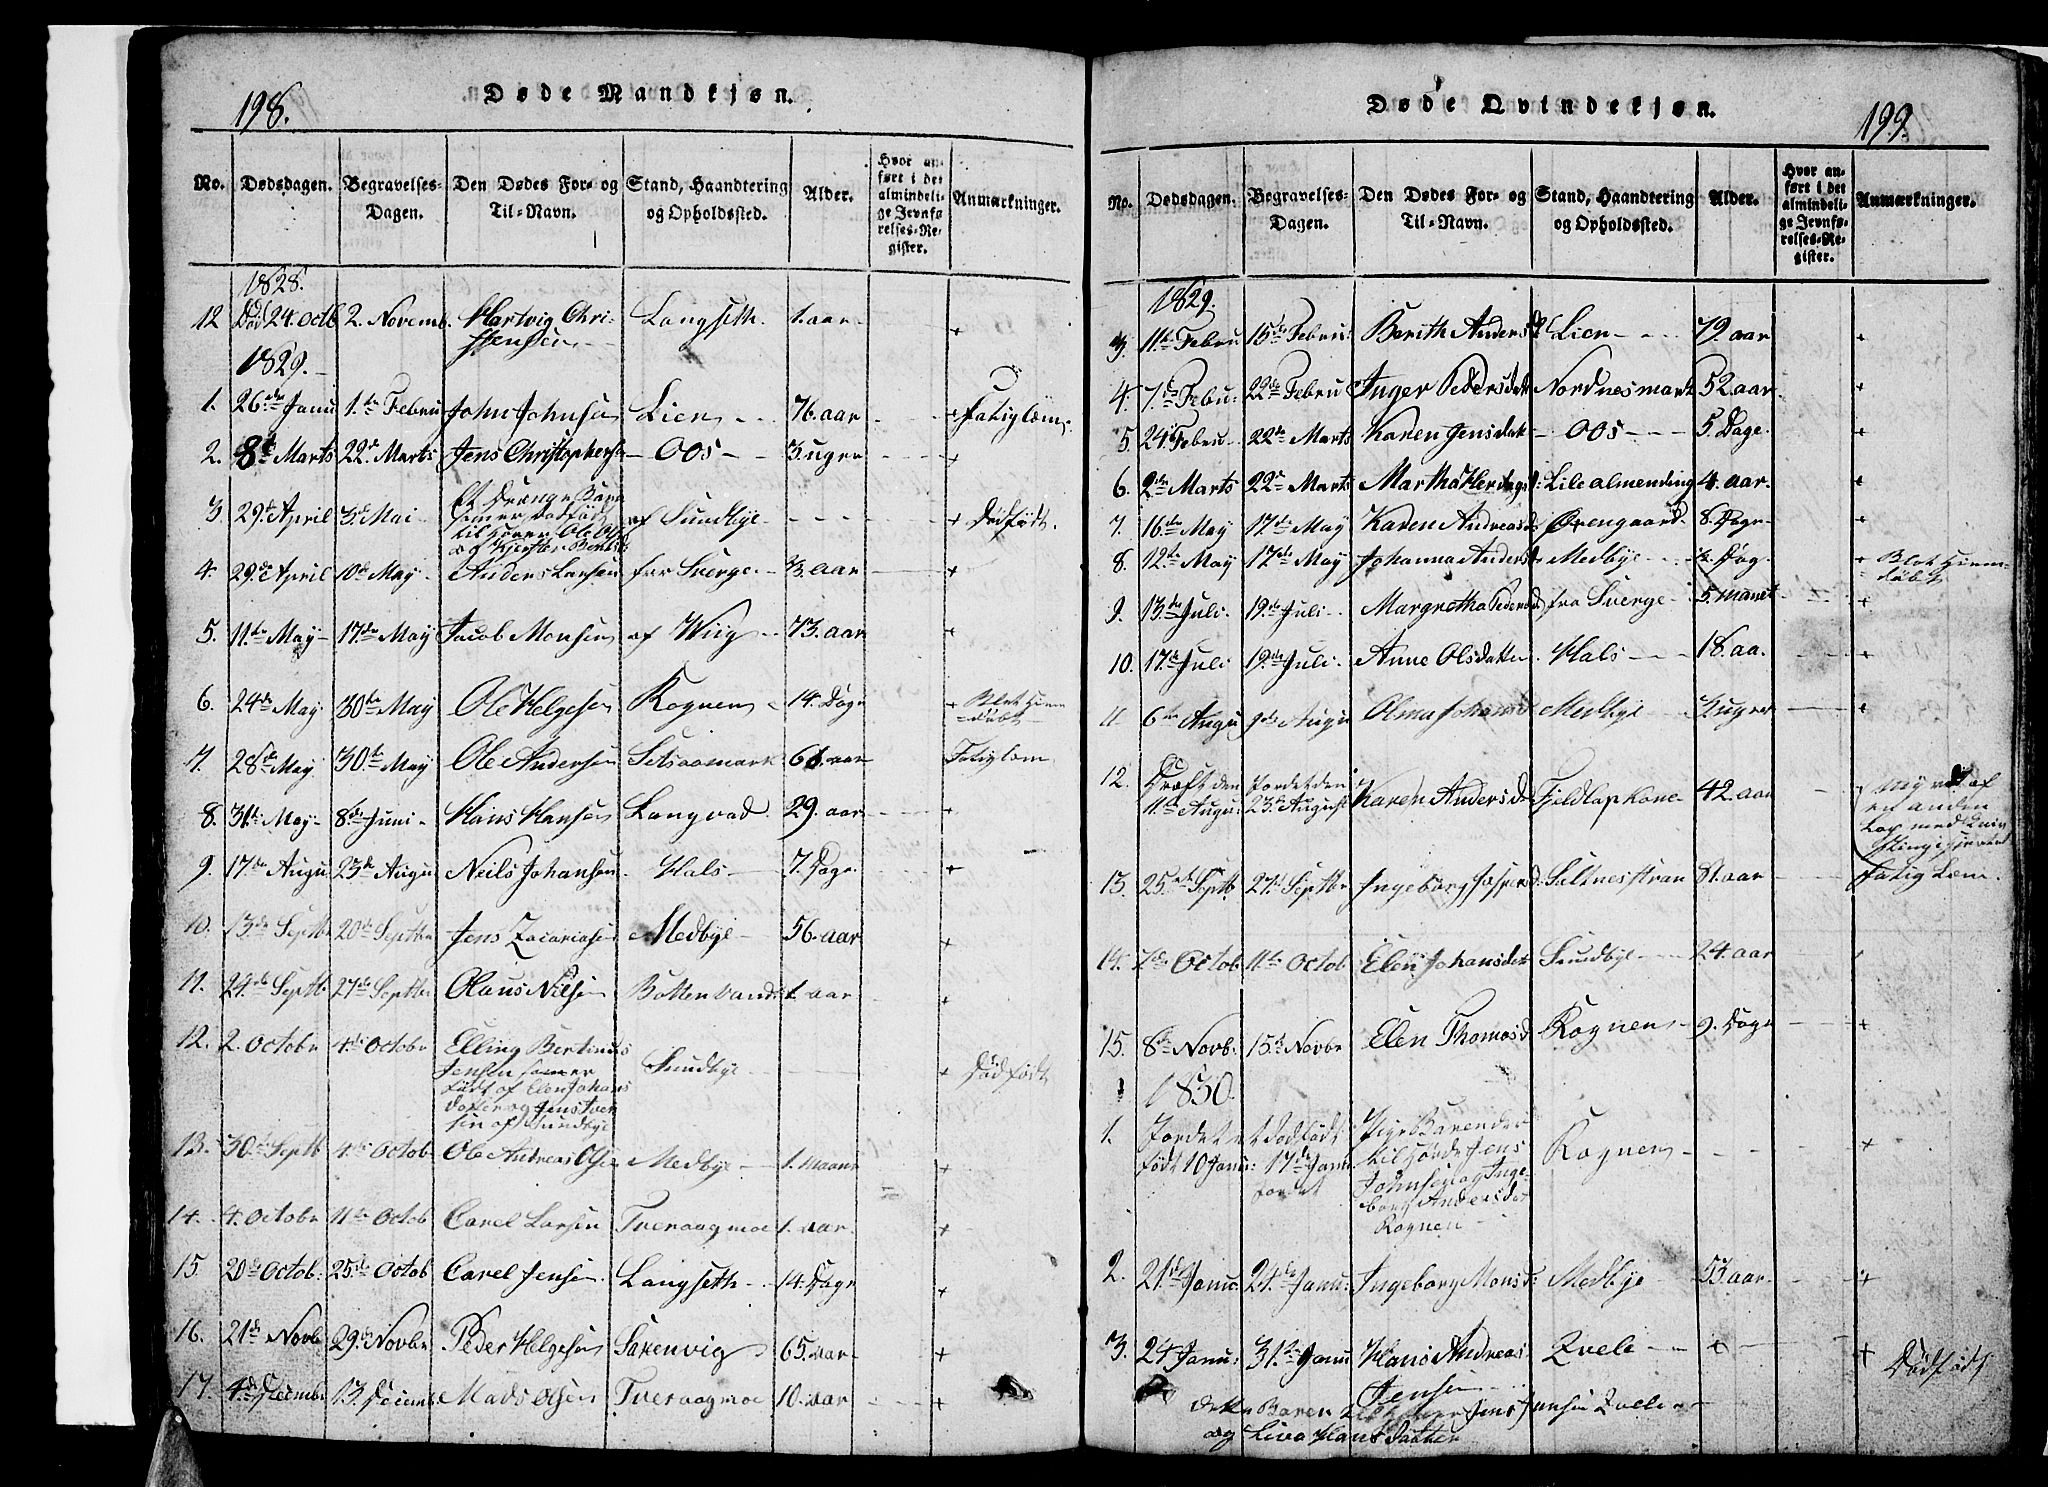 198.
Døde Mandkjøn.
No. Dødsdagen. Begravelses-Dagen. Den Dødes For- og Til-Navn. Stand, Haandtering og Opholdssted. Alder. Hvor anført i det almindelige Jevnførelses-Register. Anmærkninger.
1828.
12 Død 24. Octb 2. Novemb. Hartvig Chri-
stensen Langseth 1. aar +
1829.
1. 26de Janu 1.de Febru John Johnsen Lien 76. aar + Fatiglem
2. 8de Marts 22de Marts Jens Christophersen Oos 3. uger +
3. 29de April 3de Mai Et Drænge Barn
som er Dødfødt
tilhører Ole Ols
og Kjersten Berits af Sundbye + Dødfødt.
4. 29de April 10de May Anders Larsen fra Sverge 3. aar +
5. 11te May 17de May Jacob Monsen af Wiig 73. aar +
6. 24de May 30de May Ole Helgesen Rognen 14. Dage + Blot Hiem
=døbt
7. 28de May 30te May Ole Andersen Setsaamark 61. aar Fatiglem
8. 31te May 8de Juni Hans Hansen Langvad 29. aar +
9. 17de Augu 23de Augu Neils Johansen Hals 7. Dage +
10. 13de Septb 20de Septbr Jens Zacariasen Medbye 56. aar +
11. 24de Septb 27de Septbr Olaus Nilsen Bottenvand 1. aar +
12. 2. Octobr 4de Octobr Elling Bertinus
Jensen som er
født af Elen Johans
Datter og Jens Iver
sen af Sundbye Sundbye + Dødfødt
13. 30te Septb 4de Octob Ole Andreas Ols Medbye 1. Maane +
14. 4. Octobr 11te Octob Carel Larsen Tveraagmoe 1. aar +
15. 20de Octob. 25de Octob Carel Jensen Langseth 14. Dage +
16. 21de Novb 29de Novbr Peder Helgesen Saxenvig 65. aar +
17. 4de Decembr 13. Decemb Mads Olsen Tveraagmoe 10. aar +
199.
Døde Qvindekjøn.
No. Dødsdagen. Begravelses-Dagen. Den Dødes For- og Til-Navn. Stand, Haandtering og Opholdssted. Alder. Hvor anført i det almindelige Jevnførelses-Register. Anmærkninger.
1829.
3. 11te Febru 15de Febru: Berith Andersd Lien 79. aar +
4. 7de Febu: 22de Febru Inger Pedersdatt Nordnesmark 52. aar. +
5. 24de Febru 22de Marts Karen Jensdatt Oos 5. Dage. +
6. 2den Marts 22de Marts Martha Herdags: Lile almending 4. aar. +
7. 16de May 17de May Karen Andreasd Ørengaard 8. Dage +
8. 12te May 17de May Johanna Andersd Medbye ½. Døg + Blot Hiem=
=døbt
9. 13de Juli 19de Juli Margretha Pedersd fra Sverge 5. Manet +
10. 17de Juli 19de Juli Anne Olsdatter Hals 18. aa. +
11 6te Augu 9de Augu Olina Johansd Medbye 3. uger +
12. Dræft den
11te Augu: Jordet den
23de August Karen Andersd Fjeldlap kone 42. aar Myrdt af
en anden
Lap med Kniv
sting
13. 25de Septb 27de Septbr Ingeborg Jespersd: Saltnesstran 81. aar Fatig Lem.
14. 7de Octob 11te Octob Elen Johansdatt Sundbye 24. aar
15. 8de Novb: 15de Novbr Elen Thomasd Rognen 9. Dage +
1830.
1. Jordet et Dødfødt
født 10 Janu: 17de Janu
Jordet Pige Baren der
tilhørde Jens
Johnsen og Inge-
borg Andersdat
Rognen Rognen +
2. 21de Janu: 24de Janu: Ingeborg Monsd: Medbye 53. aar +
3. 24 Janu: 31te Janu Hans Andreas
Jensen Zvele + + Dødfødt
dette Baren tilhører Jens Jensen Zvele
og Liva Hans Datter